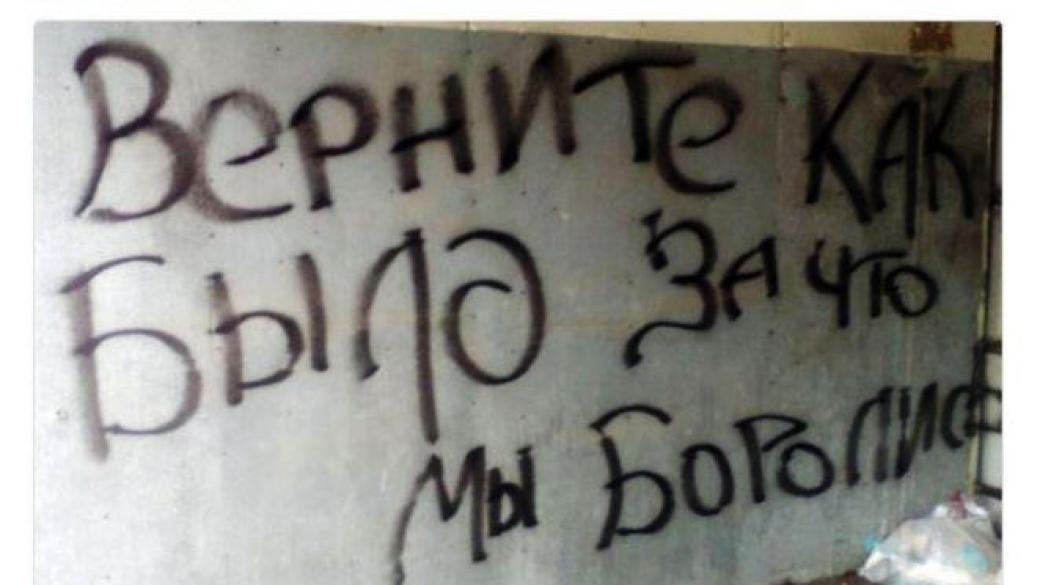 Верните КАК
Было ЗА ЧТО
Мы Боролись